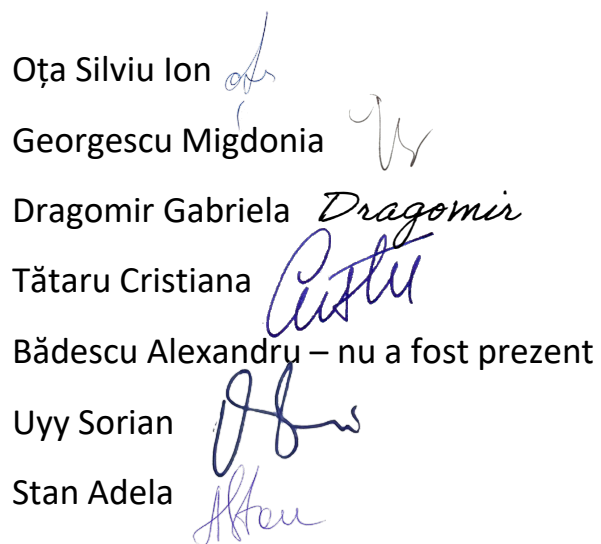 Oța Silviu Ion
Georgescu Migdonia
Dragomir Gabriela Dragomir
Tătaru Cristiana
Bădescu Alexandru – nu a fost prezent
Uyy Sorian
Stan Adela AStan